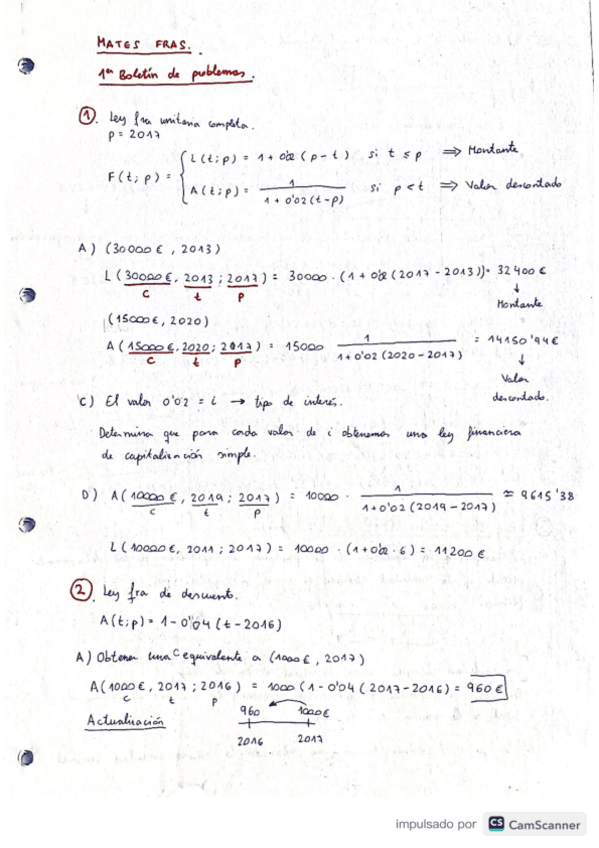 MATES FRAS.
1er Boletín de problemas.
1. Ley fra unitaria completa.
p = 2017
F(t; p) = { L(t; p) = 1 + 0'02 (p - t) si t ≤ p ⇒ Montante
A(t; p) = 1 / 1 + 0'02 (t-p) si p < t ⇒ Valor descontado
A) (30000 €, 2013)
L (30000 €, 2013 ; 2017) = 30000 · (1 + 0'02 (2017 - 2013)) = 32400 €
C t p ↓ Montante
(15000 €, 2020)
A (15000 €, 2020; 2017) = 15000 1 / 1 + 0'02 (2020 - 2017) = 14150'94 €
C t p ↓ Valor descontado.
C) El valor 0'02 = i → tipo de interés.
Determina que para cada valor de i obtenemos una ley financiera
de capitalización simple.
D) A (10000 €, 2019 ; 2017) = 10000 · 1 / 1 + 0'02 (2019 - 2017) ≈ 9615'38
C t p
L (10000 €, 2011 ; 2017) = 10000 · (1 + 0'02 · 6) = 11200 €
2. Ley fra de descuento.
A(t; p) = 1 - 0'04 (t - 2016)
A) Obtener una C equivalente a (1000 €, 2017)
A (1000 €, 2017 ; 2016) = 1000 (1 - 0'04 (2017 - 2016) = 960 €
C t p
Actualización
960 1000 €
2016 2017
impulsado por CS CamScanner